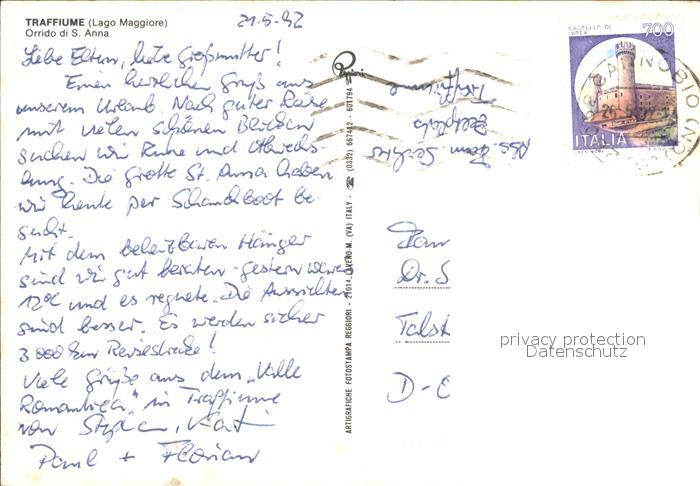 TRAFFIUME (Lago Maggiore)
Orrido di S. Anna
21-5-92
Liebe Eltern, liebe Großmutter!
Einen herzlichen Gruß aus
unserem Urlaub. Nach guter Reise
mit vielen schönen Blicken
suchen wir Ruhe und Abwechs-
lung. Die Grotte St. Anna haben
wir heute per Schlauchboot be-
sucht.
Mit dem beheizbaren Hänger
sind wir gut beraten - gestern waren
12°C und es regnete. Die Aussichten
sind besser. Es werden sicher
3000 km Reisestrecke!
Viele Grüße aus dem "Valle
Romantica" in Traffiume
von Stephan,
Paul + Florian
ARTIGRAFICHE FOTOSTAMPA REGGIORI - 21014 LAVENO-M. (VA) ITALY - ☎ (0332) 667442 - 601794
Traffiume
Fam
Dr. S
Talst
D-
CASTELLO DI
IVREA
700
ITALIA
CANNOBIO
privacy protection
Datenschutz